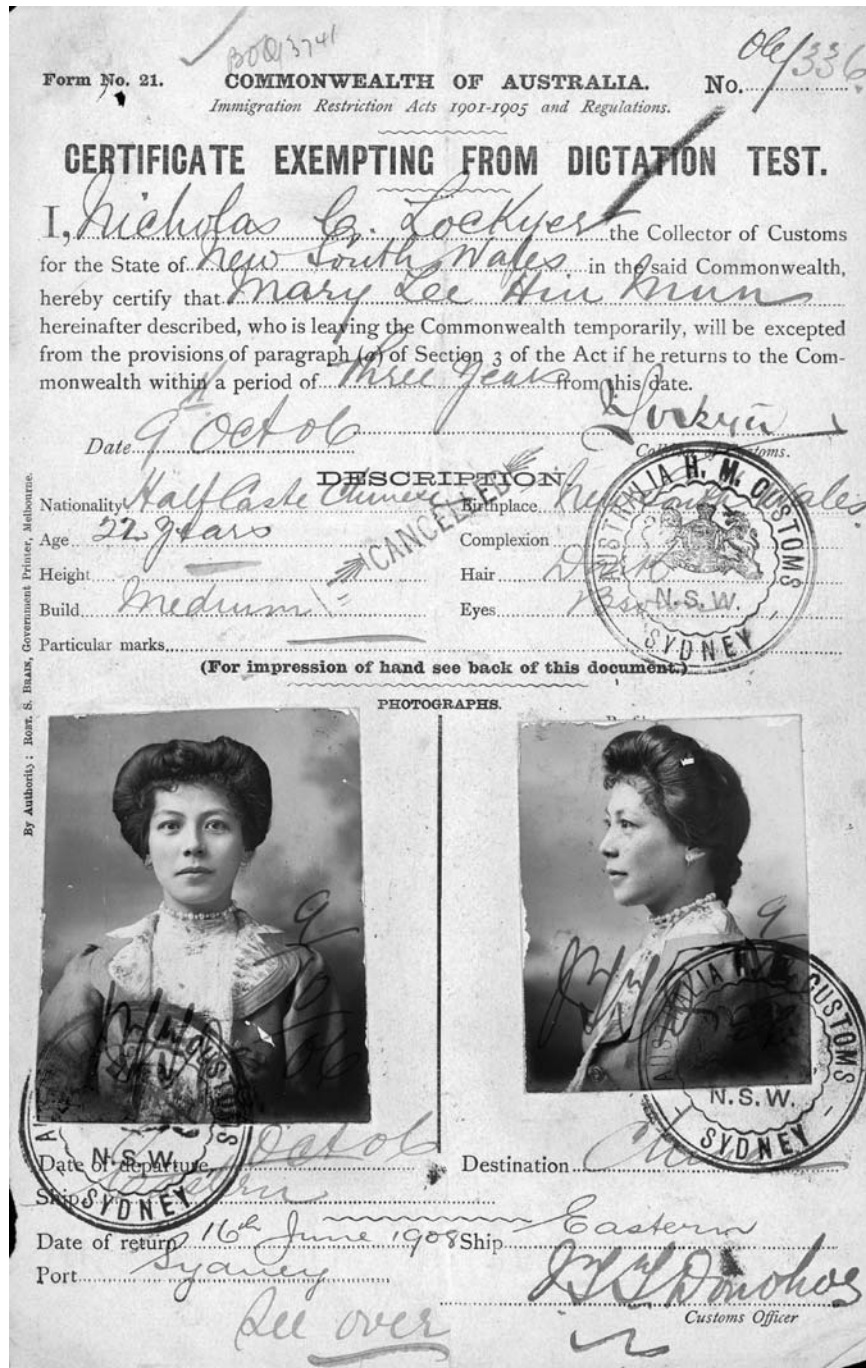 BOQ 3741
Form No. 21. COMMONWEALTH OF AUSTRALIA. No. 06/336
Immigration Restriction Acts 1901-1905 and Regulations.
CERTIFICATE EXEMPTING FROM DICTATION TEST.
I, Nicholas C. Lockyer the Collector of Customs
for the State of New South Wales in the said Commonwealth,
hereby certify that Mary Lee Hin Mun
hereinafter described, who is leaving the Commonwealth temporarily, will be excepted
from the provisions of paragraph (a) of Section 3 of the Act if he returns to the Com-
monwealth within a period of Three Years from this date.
N Lockyer
Date 9th Oct 06 Collector of Customs.
DESCRIPTION.
Nationality Half Caste Chinese Birthplace New South Wales.
Age 22 years Complexion
Height Hair Dark
Build Medium Eyes Brown
Particular marks
CANCELLED
AUSTRALIA H. M. CUSTOMS
N.S.W.
SYDNEY
(For impression of hand see back of this document.)
PHOTOGRAPHS.
By Authority: ROBT. S. BRAIN, Government Printer, Melbourne.
9/10/06
9
AUSTRALIA H. M. CUSTOMS
N.S.W.
SYDNEY
AUSTRALIA H. M. CUSTOMS
N.S.W.
SYDNEY
Date of departure Oct 06 Destination China
Ship Eastern
Date of return 16th June 1908 Ship Eastern
Port Sydney J T T Donohoe
Customs Officer
See over